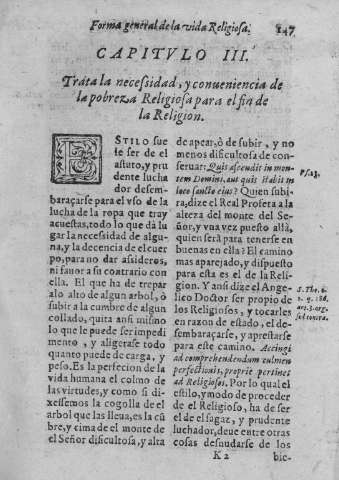 Forma general de la vida Religiosa. 147
CAPITVLO III.
Trata la necessidad, y conueniencia de
la pobreza Religiosa para el fin de
la Religion.
ESTILO sue
le ser de el
astuto, y pru
dente lucha
dor desem-
baraçarse para el vso de la
lucha de la ropa que tray
acuestas, todo lo que dà lu
gar la necessidad de algu-
na, y la decencia de el cuer
po, para no dar assideros,
ni fauor a su contrario con
ella. El que ha de trepar
alo alto de algun arbol, ò
subir a la cumbre de algun
collado, quita ansi mismo
lo que le puede ser impedi
mento, y aligerase todo
quanto puede de carga, y
peso. Es la perfecion de la
vida humana el colmo de
las virtudes, y como si di-
xessemos la cogolla de el
arbol que las lleua, es la cũ
bre, y cima de el monte de
el Señor discultosa, y alta
de apear, ò de subir, y no
menos dificultosa de con-
seruar: Quis ascendit in mon-
tem Domini, aut quis habit in
loco sancto eius? Quien subi-
ra, dize el Real Profeta a la
alteza del monte del Se-
ñor, y vna vez puesto allà,
quien serà para tenerse en
buenas en ella? El camino
mas aparejado, y dispuesto
para esta es el de la Reli-
gion. Y ansi dize el Ange-
lico Doctor ser propio de
los Religiosos, y tocarles
en razon de estado, el de-
sembaraçarse, y aprestarse
para este camino. Accingi
ad comprehendendum culmen
perfectionis, propriè pertinet
ad Religiosos. Por lo qual el
estilo, y modo de proceder
de el Religioso, ha de ser
el de el sagaz, y prudente
luchador, deue entre otras
cosas desnudarse de los
Ps. 23.
S. Tho. 2.
2. q. 186.
art. 3. arg.
K 2
bie-